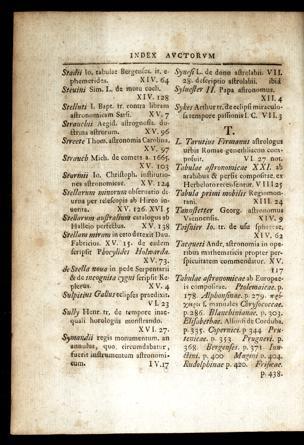 INDEX AVCTORVM
Stadii Io. tabulae Bergenses. it. e-
phemerides. XIV. 64
Stevini Sim. L. de motu coeli.
XIV. 128
Stelluti I. Bapt. tr. contra libram
astronomicam Sarsi. XV. 7
Strauchii Aegid. astrognosia. do-
ctrina astrorum. XV. 96
Streete Thom. astronomia Carolina.
XV. 97
Straucb Mich. de cometa a. 1665.
XV. 103
Sturmii Io. Christoph. institutio-
nes astronomicae. XV. 124
Stellarum numerus observatio di-
urna per telescopia ab Hireo in-
uenta. XV. 126 XVI 5
Stellarum australium catalogus ab
Halleio perfectus. XV. 138
Stellam miram in ceto detexit Dau.
Fabricius. XV. 15. de eadem
scripsit Phocylides Holwarda.
XV. 73.
de Stella noua in pede Serpentarii
& de incognita cygni scripsit Ke-
plerus. XV. 4
Sulpitius Gallus eclipses praedixit.
VI. 23
Sully Henr. tr. de tempore inae-
quali horologiis monstrando.
XVI. 27.
Symandii regis monumentum, an
annulus, quo, circumdabatur,
fuerit instrumentum astronomi-
cum. IV.17
Synesi L. de dono astrolabii. VII.
28. descriptio astrolabii. ibid
Sylvester II. Papa astronomus.
XII. 4
Sykes Arthur tr. de eclipsi miraculo-
sa tempore passionis I. C. VII. 3
T.
L. Tarutius Firmanus astrologus
urbis Romae genethliacon com-
posuit. VI. 27 not.
Tabulae astronomicae XXI. ab
arabibus & persis compositae ex
Herbeloto recensentur. VIII 25
Tabula primi mobilis Regiomon-
tani. XIII. 24
Tannstetter Georg. astronomus
Viennensis. XIV. 9
Taisnier Io. tr. de usu sphaerae.
XIV. 62
Tacqueti Andr. astronomia in ope-
ribus mathematicis propter per-
spicuitatem commendatur. XV.
117
Tabulae astronomicae ab Europae-
is compositae. Ptolemaicae. p.
178. Alphonsinae. p. 279.
s. manuales Chrysococcae.
p. 286. Blanchinianae. p. 303.
Elisabethae. Alfonsi de Corduba.
p. 335. Copernici. p 344 Pru-
tenicae. p. 353. Prugneri. p.
368. Bergenses. p. 371.
p. 400 Magini p. 404.
Rudolphinae p. 420. Frisicae.
p. 438.